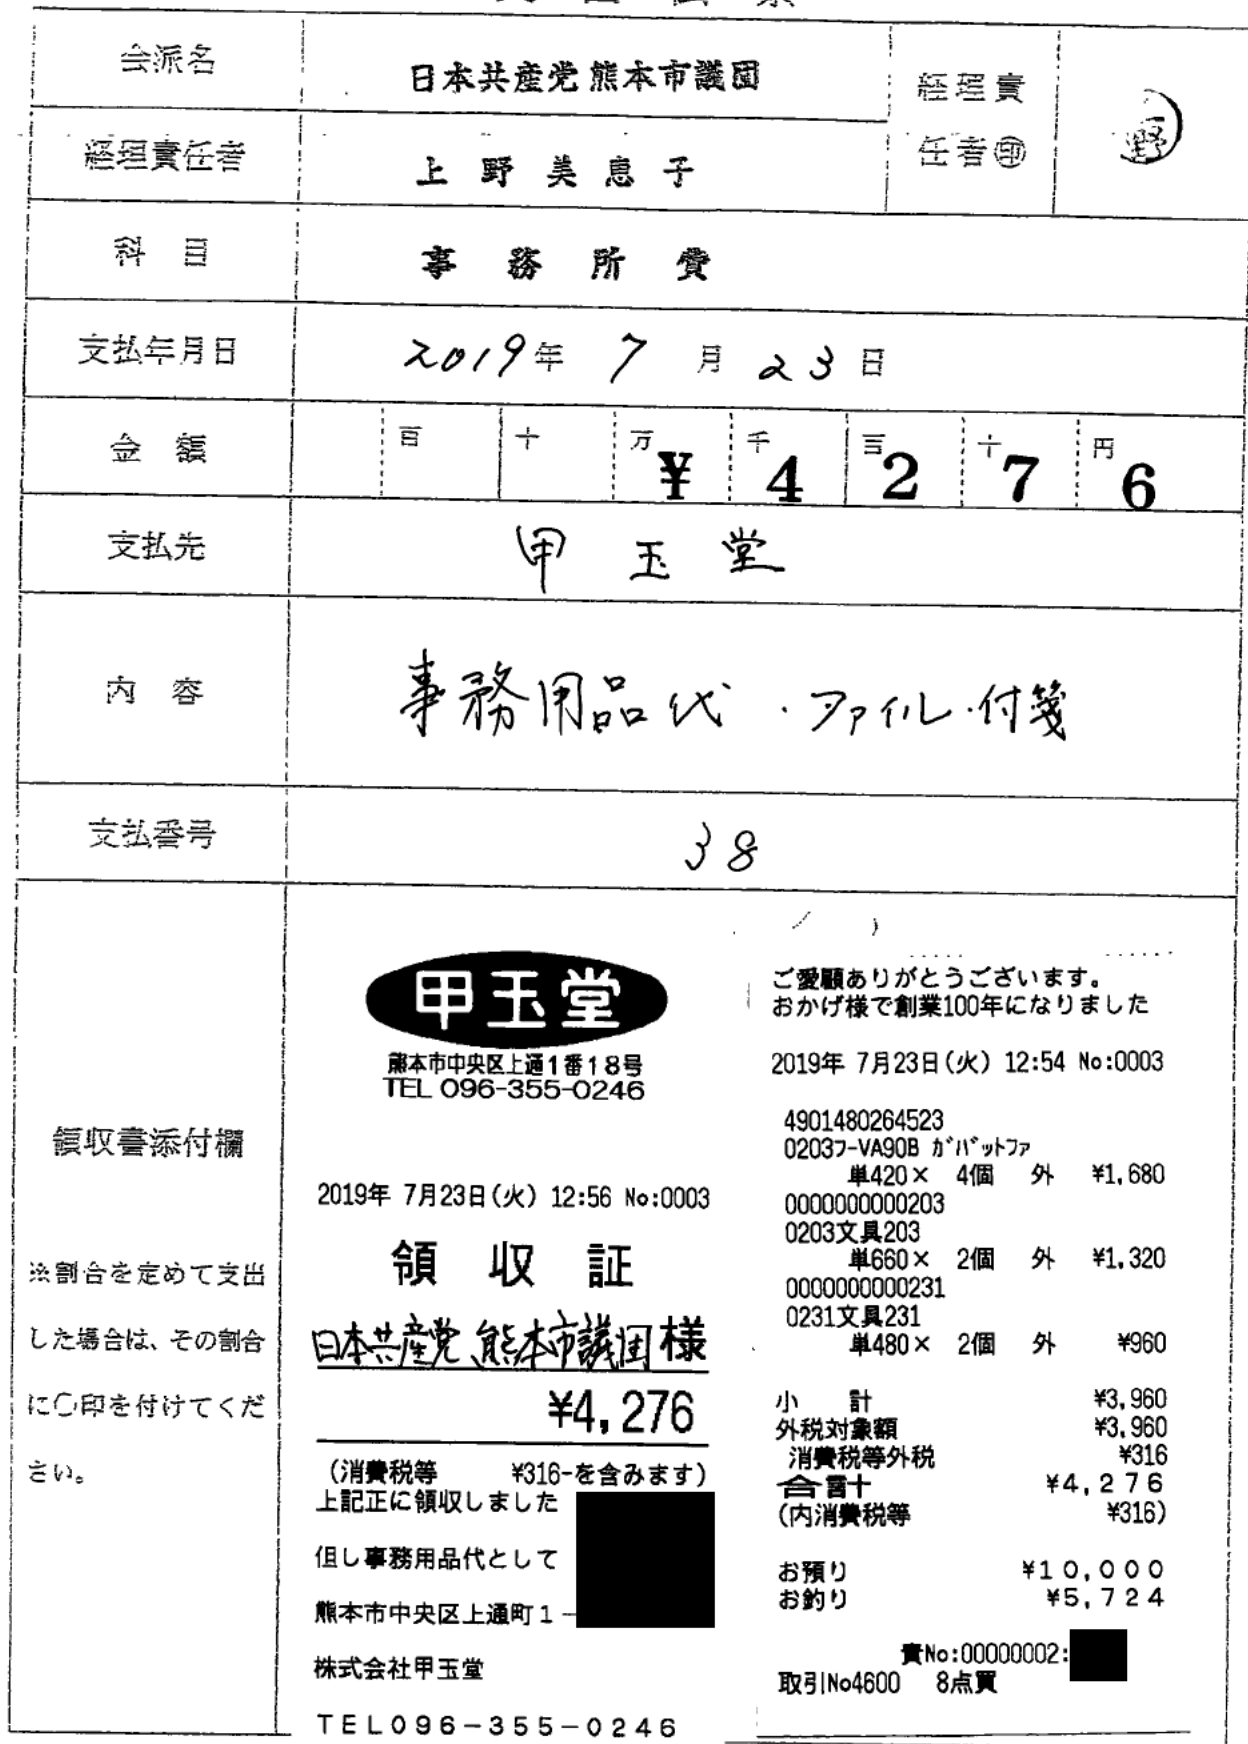 会派名
日本共産党熊本市議団
経理責
任者㊞
野
経理責任者
上野美恵子
科目
事務所費
支払年月日
2019年 7月 23日
金額
百 十 万 千 百 十 円
¥4276
支払先
甲玉堂
内容
事務用品代・ファイル・付箋
支払番号
38
領収書添付欄
※割合を定めて支出
した場合は、その割合
に○印を付けてくだ
さい。
甲玉堂
熊本市中央区上通1番18号
TEL 096-355-0246
2019年 7月23日(火) 12:56 No:0003
領収証
日本共産党熊本市議団様
¥4,276
(消費税等 ¥316-を含みます)
上記正に領収しました
但し事務用品代として
熊本市中央区上通町1-
株式会社甲玉堂
TEL096-355-0246
ご愛顧ありがとうございます。
おかげ様で創業100年になりました
2019年 7月23日(火) 12:54 No:0003
4901480264523
0203フ-VA90B ガバットファ
単420× 4個 外 ¥1,680
0000000000203
0203文具203
単660× 2個 外 ¥1,320
0000000000231
0231文具231
単480× 2個 外 ¥960
小計 ¥3,960
外税対象額 ¥3,960
消費税等外税 ¥316
合計 ¥4,276
(内消費税等 ¥316)
お預り ¥10,000
お釣り ¥5,724
責No:00000002:
取引No4600 8点買